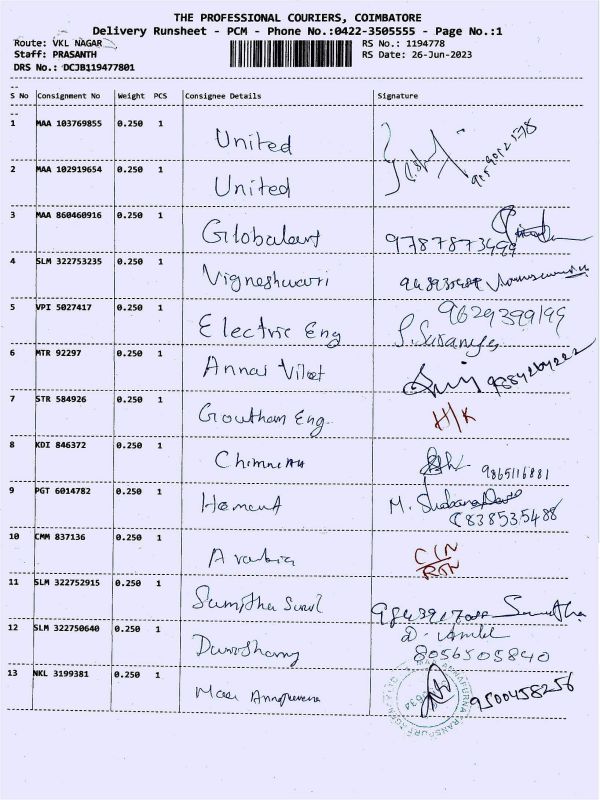 THE PROFESSIONAL COURIERS, COIMBATORE
Delivery Runsheet - PCM - Phone No.:0422-3505555 - Page No.:1
Route: VKL NAGAR RS No.: 1194778
Staff: PRASANTH RS Date: 26-Jun-2023
DRS No.: DCJB119477801
S No Consignment No Weight PCS Consignee Details Signature
1 MAA 103769855 0.250 1 United
2 MAA 102919654 0.250 1 United
3 MAA 860460916 0.250 1 Globalart 9787873499
4 SLM 322753235 0.250 1 Vigneshwari
5 VPI 5027417 0.250 1 Electric Eng 9629399199
S. Suranya
6 MTR 92297 0.250 1 Annai
7 STR 584926 0.250 1 Goutham Eng. H/K
8 KDI 846372 0.250 1 9865116881
9 PGT 6014782 0.250 1 Hemant M.
838535488
10 CMM 837136 0.250 1 C/N
RTN
11 SLM 322752915 0.250 1
12 SLM 322750640 0.250 1 D.
8056505840
13 NKL 3199381 0.250 1 Maa 9500458256